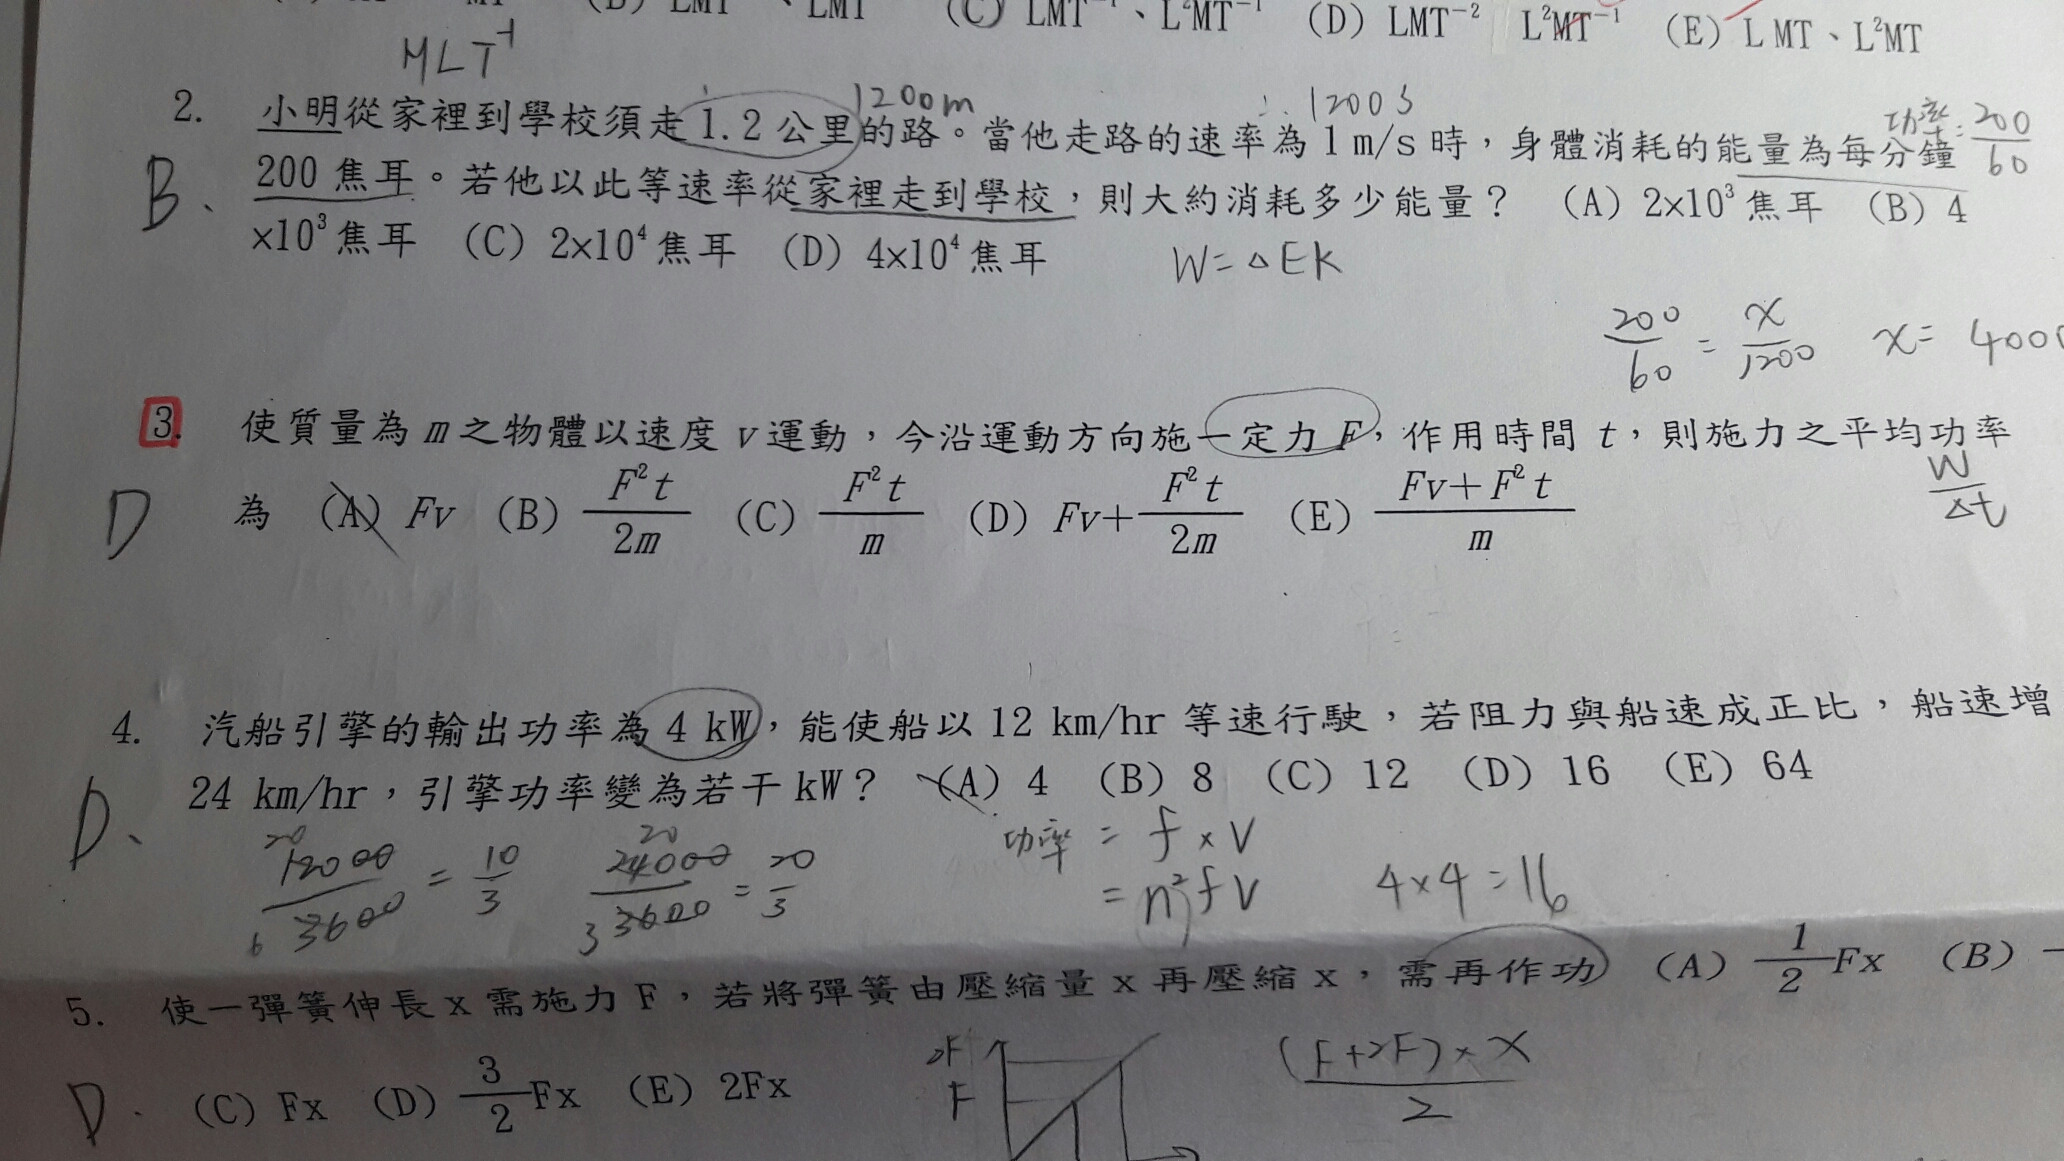 (C) LMT⁻¹、L²MT⁻¹ (D) LMT⁻² L²MT⁻¹ (E) LMT、L²MT
MLT⁻¹
1200m ∴1200s 功率=200/60
2. 小明從家裡到學校須走1.2公里的路。當他走路的速率為1m/s時，身體消耗的能量為每分鐘
B、 200焦耳。若他以此等速率從家裡走到學校，則大約消耗多少能量？ (A) 2×10³焦耳 (B) 4
×10³焦耳 (C) 2×10⁴焦耳 (D) 4×10⁴焦耳
W=△EK
200/60 = x/1200 x=4000
3. 使質量為m之物體以速度v運動，今沿運動方向施一定力F，作用時間t，則施力之平均功率
W/△t
D 為 (A) Fv (B) F²t/2m (C) F²t/m (D) Fv+F²t/2m (E) Fv+F²t/m
4. 汽船引擎的輸出功率為4 kW，能使船以12 km/hr等速行駛，若阻力與船速成正比，船速增
D、 24 km/hr，引擎功率變為若干kW？ (A) 4 (B) 8 (C) 12 (D) 16 (E) 64
20 12000/3600 6 = 10/3 20 24000/3600 3 = 20/3 功率 = f×V
= n²fV 4×4=16
5. 使一彈簧伸長x需施力F，若將彈簧由壓縮量x再壓縮x，需再作功 (A) 1/2Fx (B)
D. (C) Fx (D) 3/2Fx (E) 2Fx
2F
F
(F+2F)×x/2